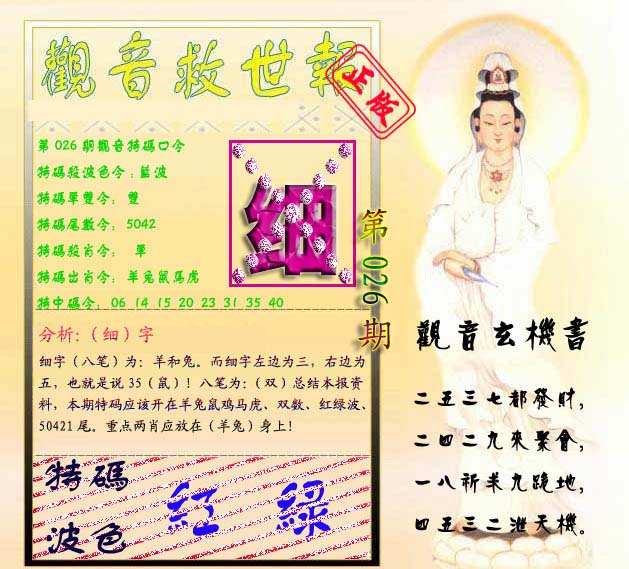 觀音救世報
正版
第 026 期觀音特碼口令
特碼殺波色令：藍波
特碼單雙令： 雙
特碼尾數令： 5042
特碼殺肖令： 單
特碼出肖令： 羊兔鼠馬虎
特中碼令： 06 14 15 20 23 31 35 40
细
第 026 期
分析:（细）字
细字（八笔）为：羊和兔。而细字左边为三，右边为
五，也就是说 35（鼠）！八笔为：（双）总结本报资
料，本期特码应该开在羊兔鼠鸡马虎、双数、红绿波、
50421 尾。重点两肖应放在（羊兔）身上！
特碼
波色
紅 綠
觀音玄機書
二五三七都發財,
二四二九來聚會,
一八祈求九跪地,
四五三二泄天機。